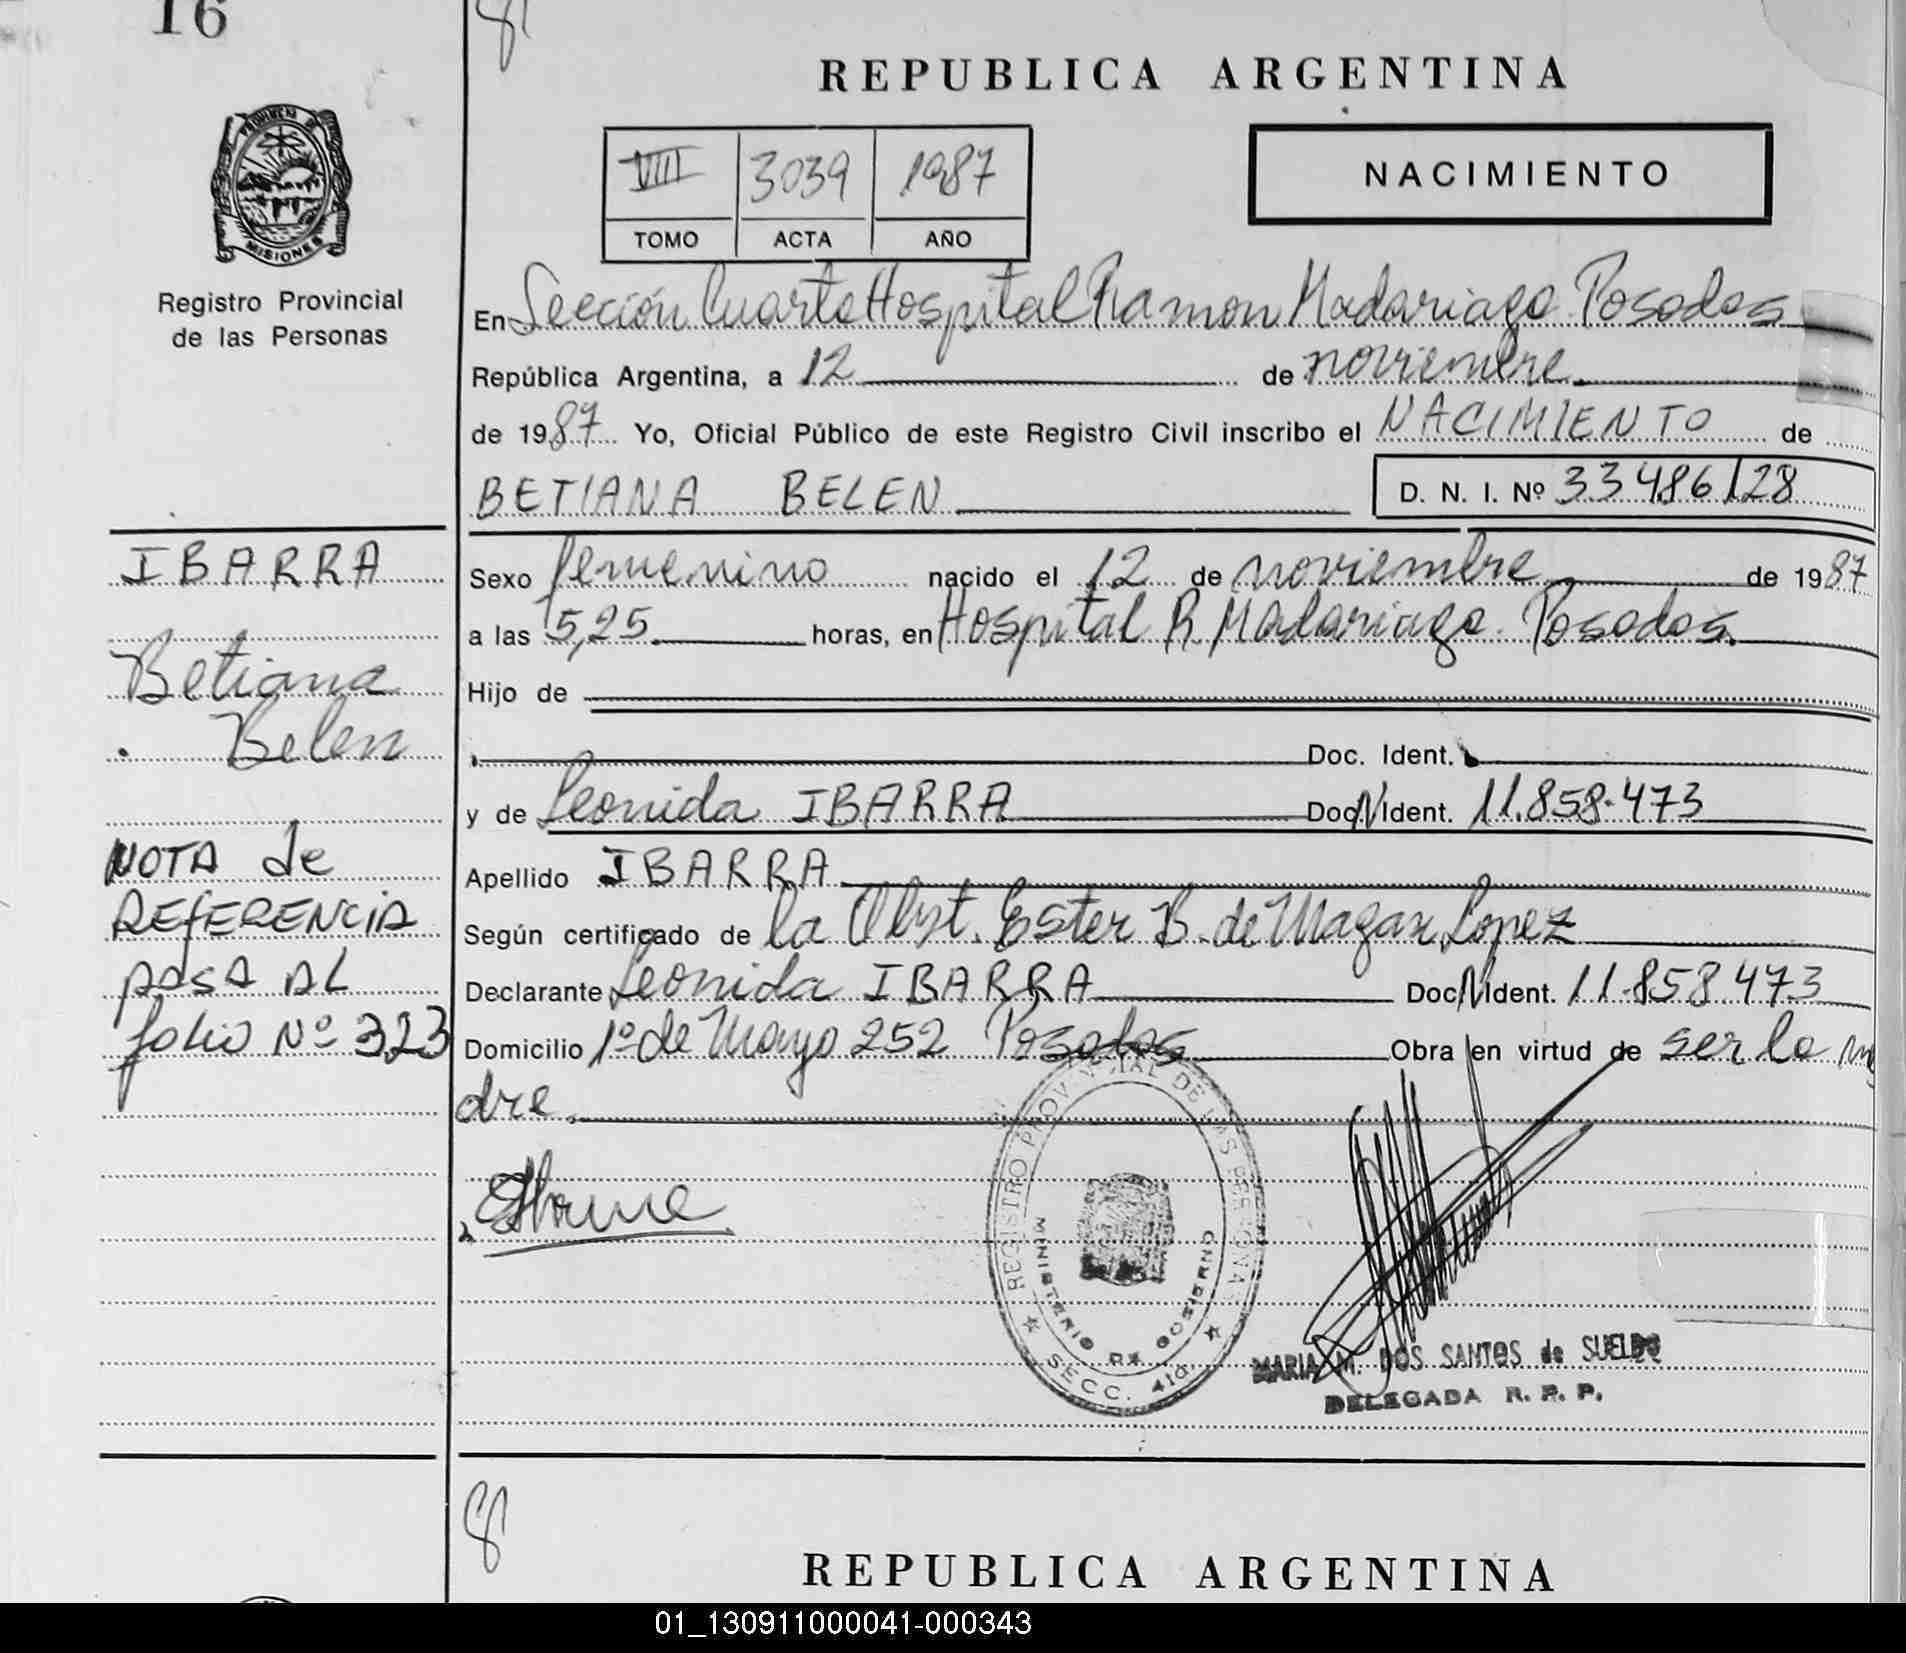 16
8
REPUBLICA ARGENTINA
PROVINCIA DE
MISIONES
Registro Provincial
de las Personas
VIII 3039 1987
TOMO ACTA AÑO
NACIMIENTO
En Sección Cuarta Hospital Ramon Madariaga Posadas
República Argentina, a 12 de noviembre
de 1987 Yo, Oficial Público de este Registro Civil inscribo el NACIMIENTO de
BETIANA BELEN D. N. I. Nº 33486128
IBARRA
Betiana
Belen
NOTA de
REFERENCIA
PASA AL
folio Nº 323
Sexo femenino nacido el 12 de noviembre de 1987
a las 5,25 horas, en Hospital R. Madariaga Posadas.
Hijo de
Doc. Ident.
y de Leonida IBARRA Doc. Ident. 11.858.473
Apellido IBARRA
Según certificado de la Obst. Ester B. de Magar Lopez
Declarante Leonida IBARRA Doc. Ident. 11.858.473
Domicilio 1º de Mayo 252 Posadas Obra en virtud de ser la ma
dre.
REGISTRO PROVINCIAL DE LAS PERSONAS
MINISTERIO DE GOBIERNO
SECC. 4ta
MARIA M. DOS SANTOS de SUELDO
DELEGADA R. P. P.
8
REPUBLICA ARGENTINA
01_130911000041-000343